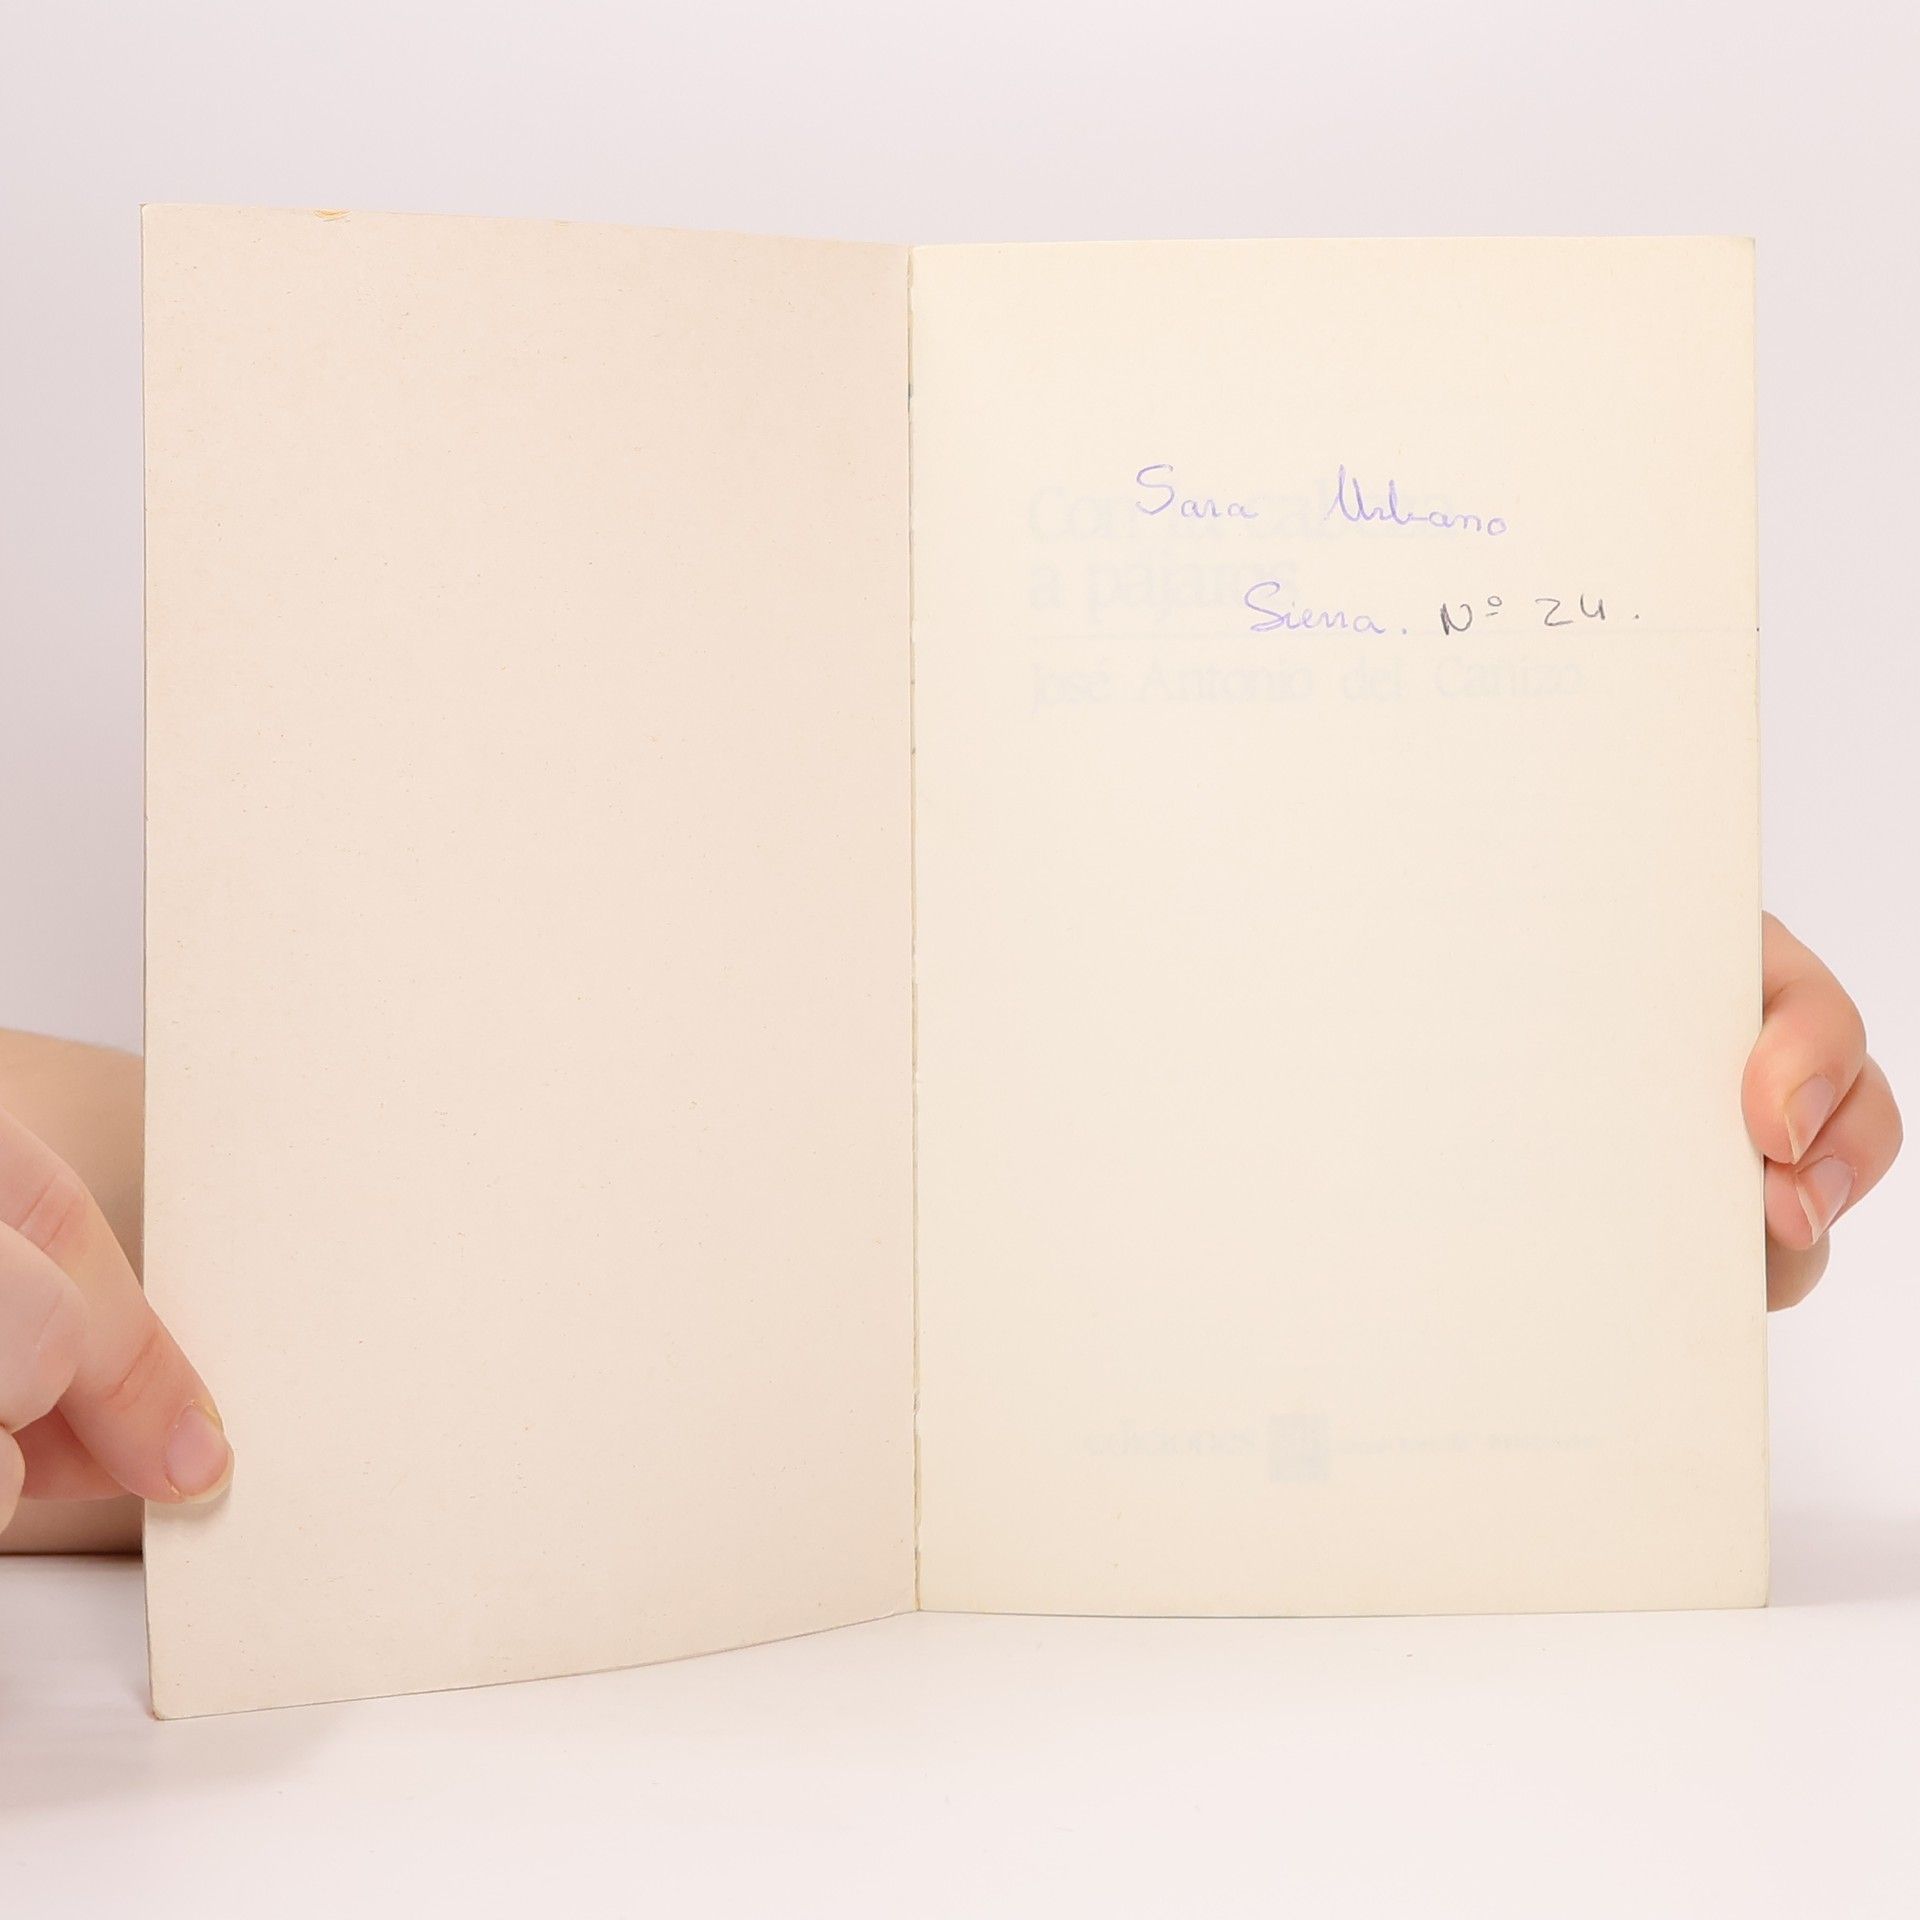 Sara Urbano
Sierra. Nº 24.
Con la cabeza
a pájaros
José Antonio del Cañizo
ediciones